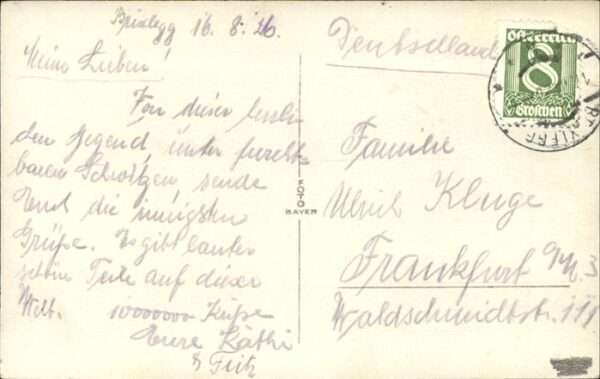 Brixlegg 16. 8. 26.
Meine Lieben!
Von dieser herrli-
chen Gegend, unter furcht-
baren Schwitzen sende
Euch die innigsten
Grüße. Es gibt lauter
schöne Teile auf dieser
Welt. 10000000 Küße
Eure Käthi
& Fritz
FOTO
BAYER
Deutschland
Österreich
8
Groschen
Familie
Ulrich Kluge
Frankfurt a/M. 3
Waldschmidtstr. 111